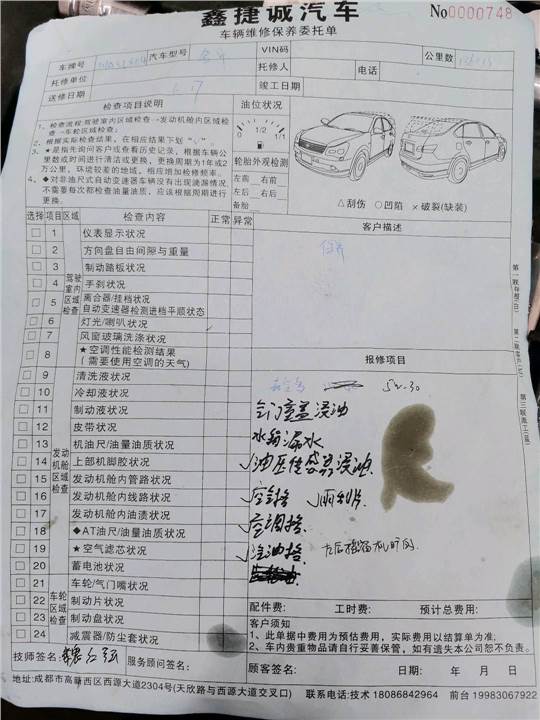 鑫捷诚汽车
车辆维修保养委托单
No0000748
车牌号 汽车型号 VIN码 公里数
托修单位 托修人 电话
送修日期 竣工日期
检查项目说明
1、检查流程:驾驶室内区域检查→发动机舱内区域检查
→车轮区域检查;
2、根据实际检查结果,在相应结果下划“√”。
3、★是指先询问客户或查看历史记录,根据车辆公
里数或时间进行清洁或更换,更换周期为1年或2
万公里,环境较差的地域,相应增加检修频率。
4、◆对非油尺式自动变速器车辆没有出现滴漏情况,
不需要每次都检查油量油质,应该根据周期进行
更换。
油位状况
0 1/2 1/1
轮胎外观检测
左前 右前
左后 右后
备胎
△刮伤 ○凹陷 ×破裂(缺装)
选择 项目 区域 检查内容 正常 异常
驾驶室内区域检查
1 仪表显示状况
2 方向盘自由间隙与重量
3 制动踏板状况
4 手刹状况
5 离合器/挂档状况
自动变速器检测进档平顺状态
6 灯光/喇叭状况
7 风窗玻璃洗涤状况
8 ★空调性能检测结果
(需要使用空调的天气)
发动机舱区域检查
9 清洗液状况
10 冷却液状况
11 制动液状况
12 皮带状况
13 机油尺/油量油质状况
14 上部机脚胶状况
15 发动机舱内管路状况
16 发动机舱内线路状况
17 发动机舱内油渍状况
18 ◆AT油尺/油量油质状况
19 ★空气滤芯状况
20 蓄电池状况
车轮区域检查
21 车轮/气门嘴状况
22 制动片状况
23 制动盘状况
24 减震器/防尘套状况
客户描述
保养
报修项目
5w-30
气门室盖浸油
水箱漏水
√油压传感器浸油
√空气格 √雨刮片
√空调格
√汽油格
第一联存根(白)
第二联客户(红)
第三联施工(蓝)
配件费: 工时费: 预计总费用:
客户须知
1、此单据中费用为预估费用,实际费用以结算单为准;
2、车内贵重物品请自行妥善保管,如有遗失本公司恕不负责。
技师签名: 服务顾问签名: 顾客签名: 日期: 年 月 日
地址:成都市高新西区西源大道2304号(天欣路与西源大道交叉口) 联系电话:技术 18086842964 前台 19983076922